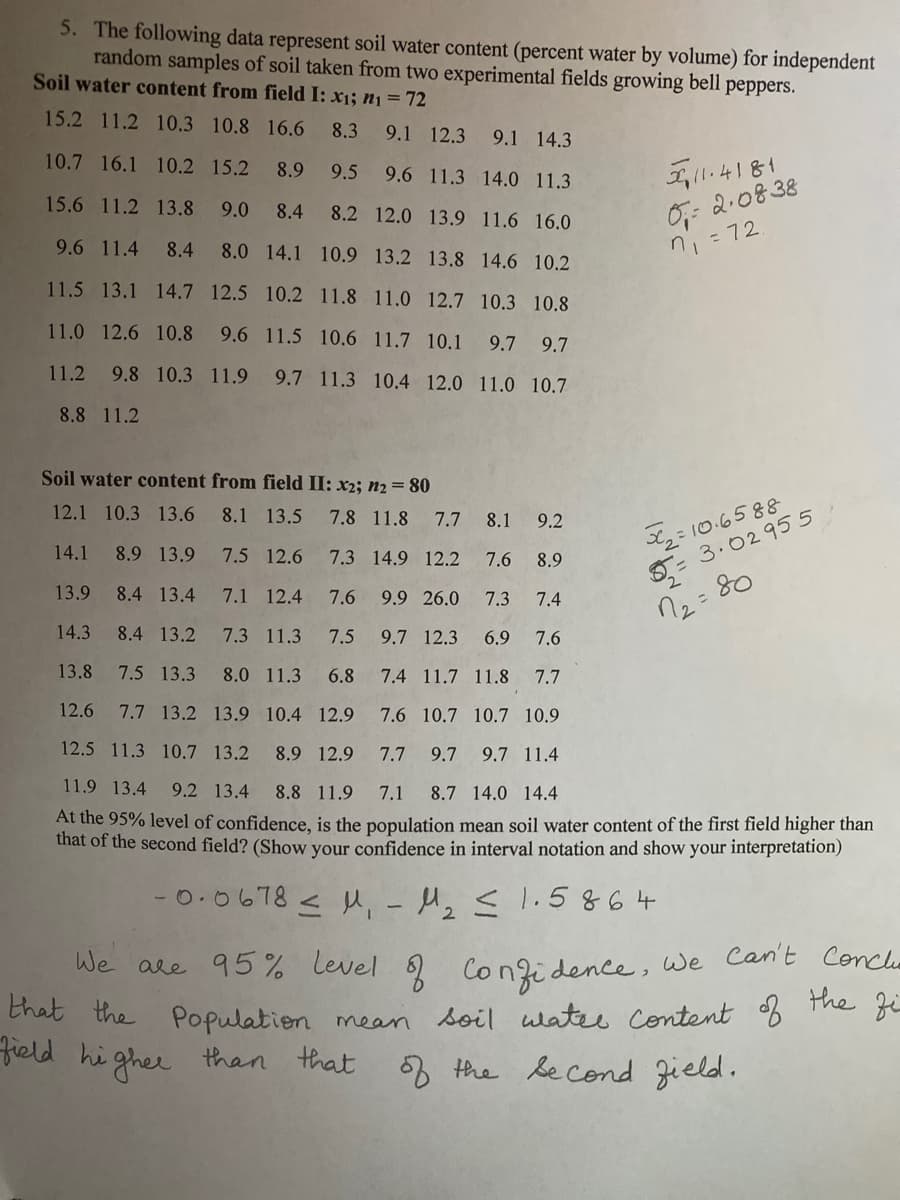 5. The following data represent soil water content (percent water by volume) for independent
random samples of soil taken from two experimental fields growing bell peppers.
Soil water content from field I: x₁; n₁ = 72
15.2 11.2 10.3 10.8 16.6 8.3 9.1 12.3 9.1 14.3
10.7 16.1 10.2 15.2 8.9 9.5 9.6 11.3 14.0 11.3
15.6 11.2 13.8 9.0 8.4 8.2 12.0 13.9 11.6 16.0
9.6 11.4 8.4 8.0 14.1 10.9 13.2 13.8 14.6 10.2
11.5 13.1 14.7 12.5 10.2 11.8 11.0 12.7 10.3 10.8
11.0 12.6 10.8 9.6 11.5 10.6 11.7 10.1 9.7 9.7
11.2 9.8 10.3 11.9 9.7 11.3 10.4 12.0 11.0 10.7
8.8 11.2
x̄₁ 11.4181
σ₁ = 2.0838
n₁ = 72
Soil water content from field II: x₂; n₂ = 80
12.1 10.3 13.6 8.1 13.5 7.8 11.8 7.7 8.1 9.2
14.1 8.9 13.9 7.5 12.6 7.3 14.9 12.2 7.6 8.9
13.9 8.4 13.4 7.1 12.4 7.6 9.9 26.0 7.3 7.4
14.3 8.4 13.2 7.3 11.3 7.5 9.7 12.3 6.9 7.6
13.8 7.5 13.3 8.0 11.3 6.8 7.4 11.7 11.8 7.7
12.6 7.7 13.2 13.9 10.4 12.9 7.6 10.7 10.7 10.9
12.5 11.3 10.7 13.2 8.9 12.9 7.7 9.7 9.7 11.4
11.9 13.4 9.2 13.4 8.8 11.9 7.1 8.7 14.0 14.4
x̄₂ = 10.6588
σ₂ = 3.02955
n₂ = 80
At the 95% level of confidence, is the population mean soil water content of the first field higher than
that of the second field? (Show your confidence in interval notation and show your interpretation)
-0.0678 ≤ μ₁ - μ₂ ≤ 1.5864
We are 95% level of Confidence, We Can't Conclu
that the Population mean soil water Content of the fi
field higher than that of the Second field.